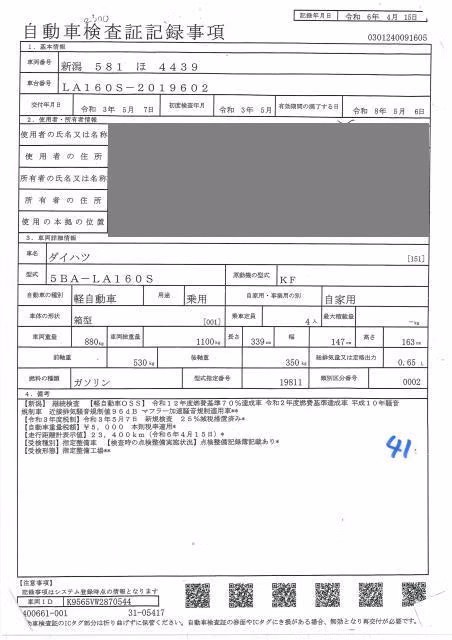 記録年月日 令和 6年 4月 15日
自動車検査証記録事項
0301240091605
1. 基本情報
車両番号 新潟 581 ほ 4439
車台番号 LA160S-2019602
交付年月日 令和 3年 5月 7日 初度検査年月 令和 3年 5月 有効期間の満了する日 令和 8年 5月 6日
2. 使用者・所有者情報
使用者の氏名又は名称
使用者の住所
所有者の氏名又は名称
所有者の住所
使用の本拠の位置
3. 車両詳細情報
車名 ダイハツ [151]
型式 5BA-LA160S 原動機の型式 KF
自動車の種別 軽自動車 用途 乗用 自家用・事業用の別 自家用
車体の形状 箱型 [001] 乗車定員 4人 最大積載量 -kg
車両重量 880kg 車両総重量 1100kg 長さ 339cm 幅 147cm 高さ 163cm
前軸重 530kg 後軸重 350kg 総排気量又は定格出力 0.65L
燃料の種類 ガソリン 型式指定番号 19811 類別区分番号 0002
4. 備考
【新潟】 継続検査 【軽自動車OSS】 令和12年度燃費基準70%達成車 令和2年度燃費基準達成車 平成10年騒音
規制車 近接排気騒音規制値96dB マフラー加速騒音規制適用車**
【令和3年度税制】令和3年5月7日 新規検査 25%減税措置済み*
【自動車重量税額】¥5,000 本則税率適用*
【走行距離計表示値】23,400km (令和6年4月15日)*
【受検種別】指定整備車 【検査時の点検整備実施状況】点検整備記録簿記載あり*
【受検形態】指定整備工場**
41
【注意事項】
記載事項はシステム登録時点の情報となります
車両ID K9565VW2870544
400661-001 31-05417
自動車検査証のICタグ部分は折り曲げずに保管ください。自動車検査証の券面やICタグにき損がある場合、無効となり再交付が必要です。